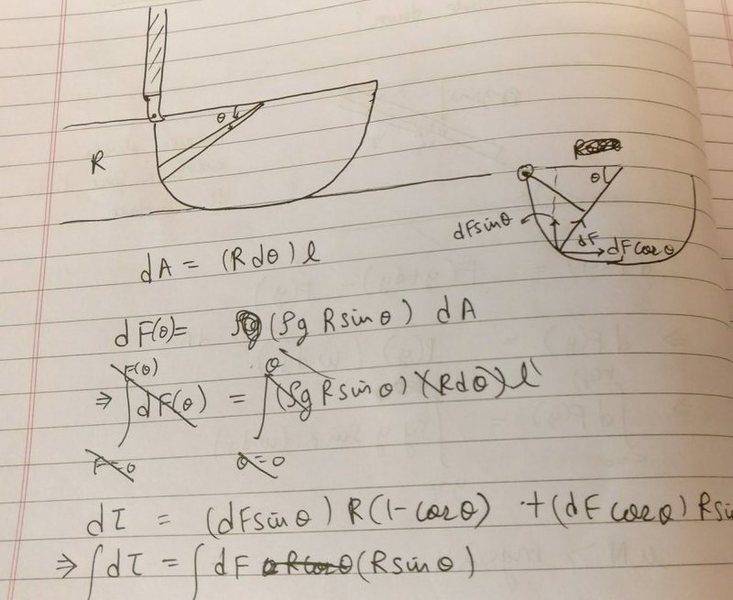 θ
R
θ
dFsinθ
dF
dFcosθ
dA = (Rdθ)l
dF(θ)= (ρg Rsinθ) dA
F(θ) θ
⇒ ∫dF(θ) = ∫(ρg Rsinθ)(Rdθ)l
F=0 θ=0
dτ = (dFsinθ) R(1-cosθ) +(dF cosθ) Rsin
⇒ ∫dτ = ∫ dF (Rsinθ)